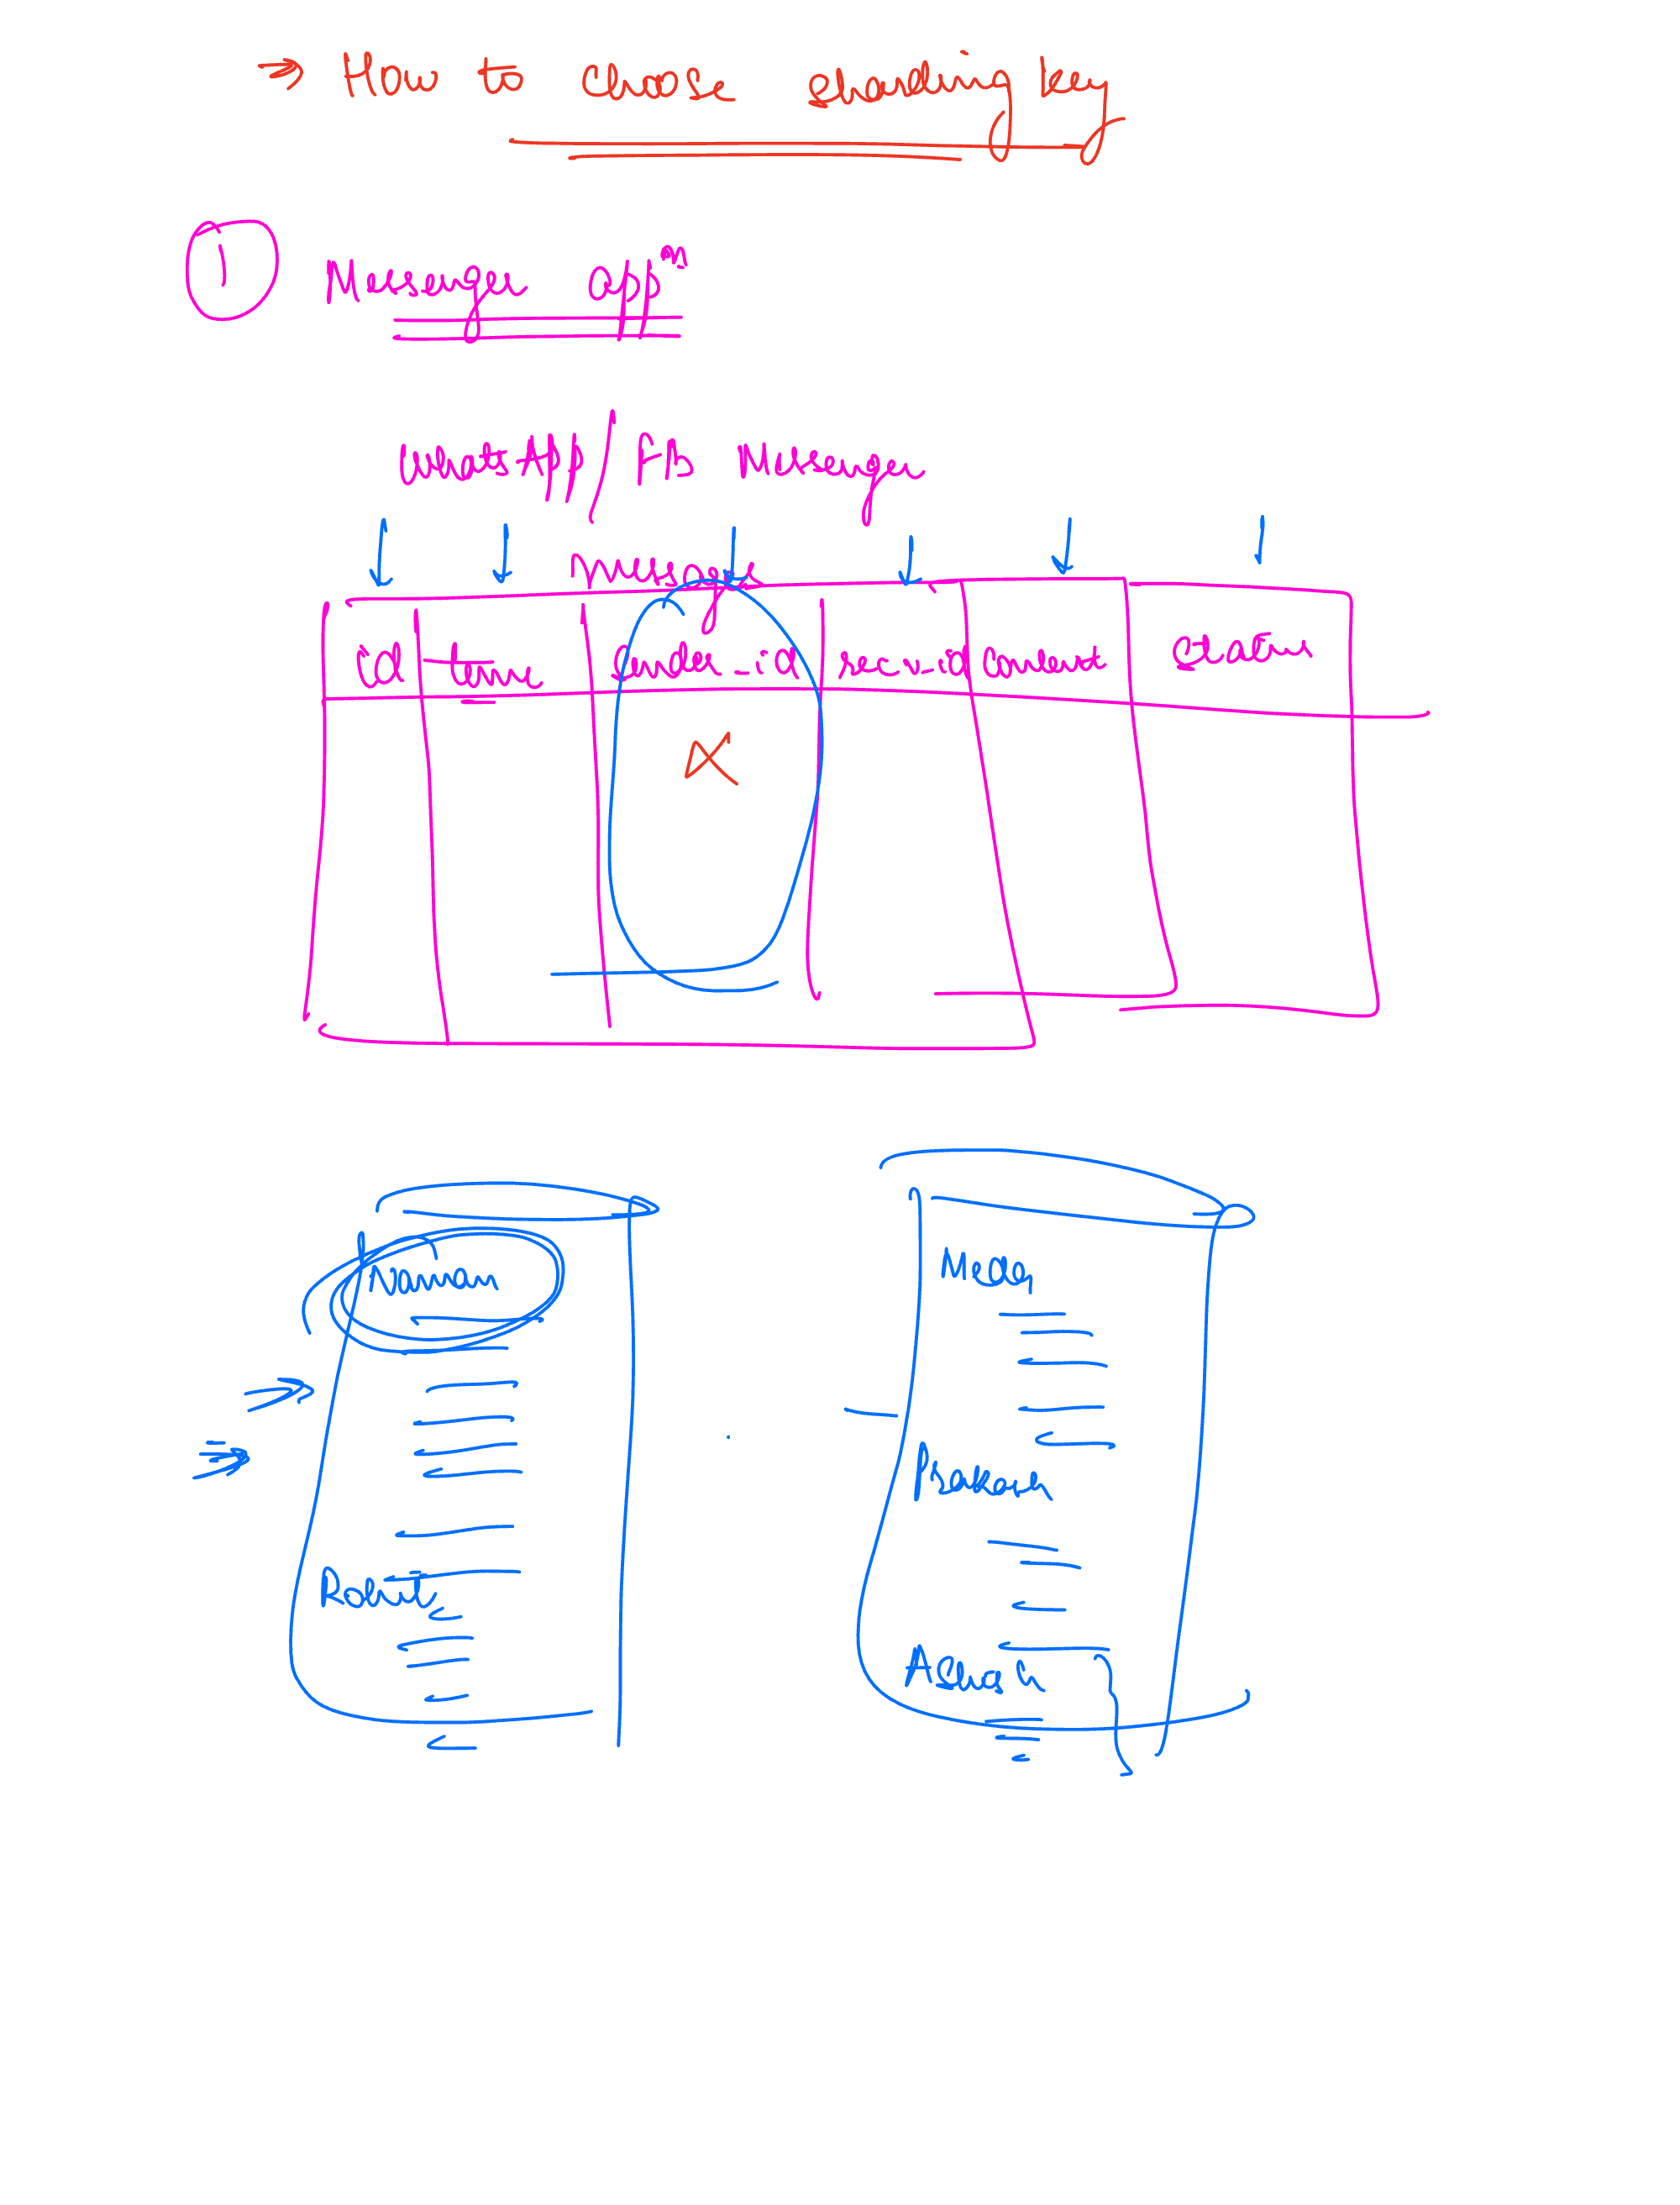 → How to choose sharding key
① Messenger appⁿ
WhatsApp / FB Messenger
messages
id time sender_id recv_id content status
Naman
Rohit
Megha
Prakash
Akash